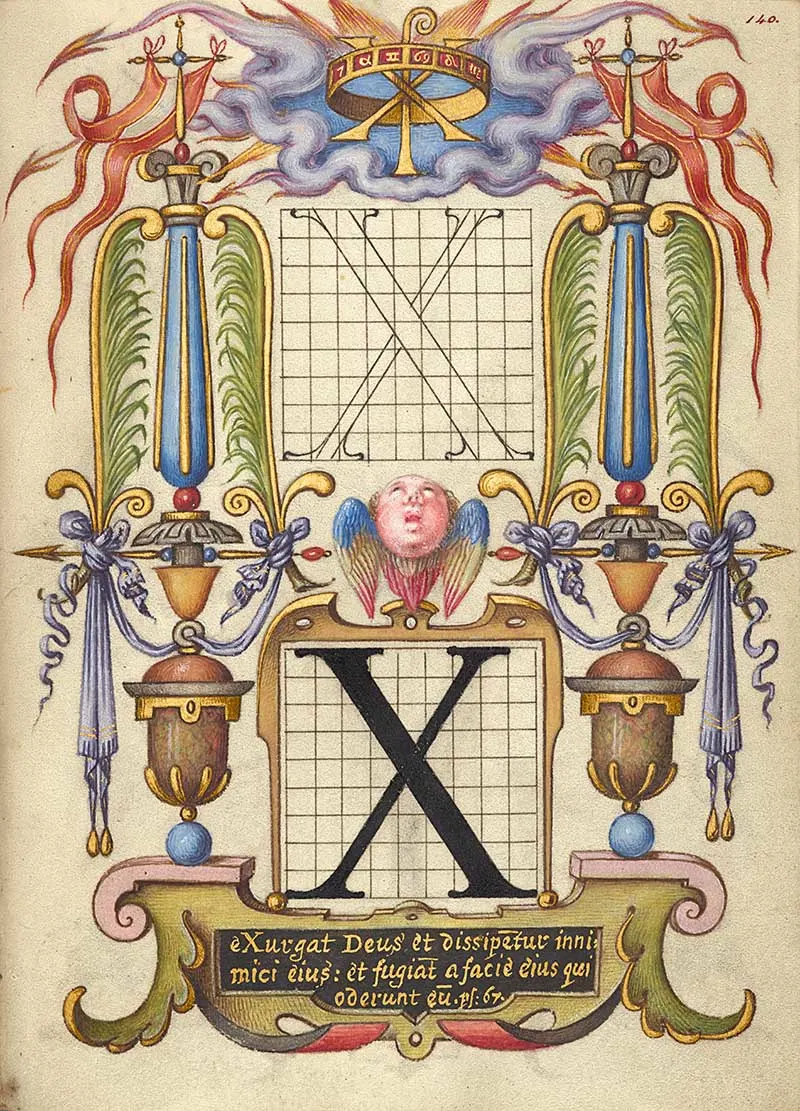 140.
X
X
eXurgat Deus et dissipētur inni-
mici eius: et fugiāt a facie eius qui
oderunt eū. ps: 67.